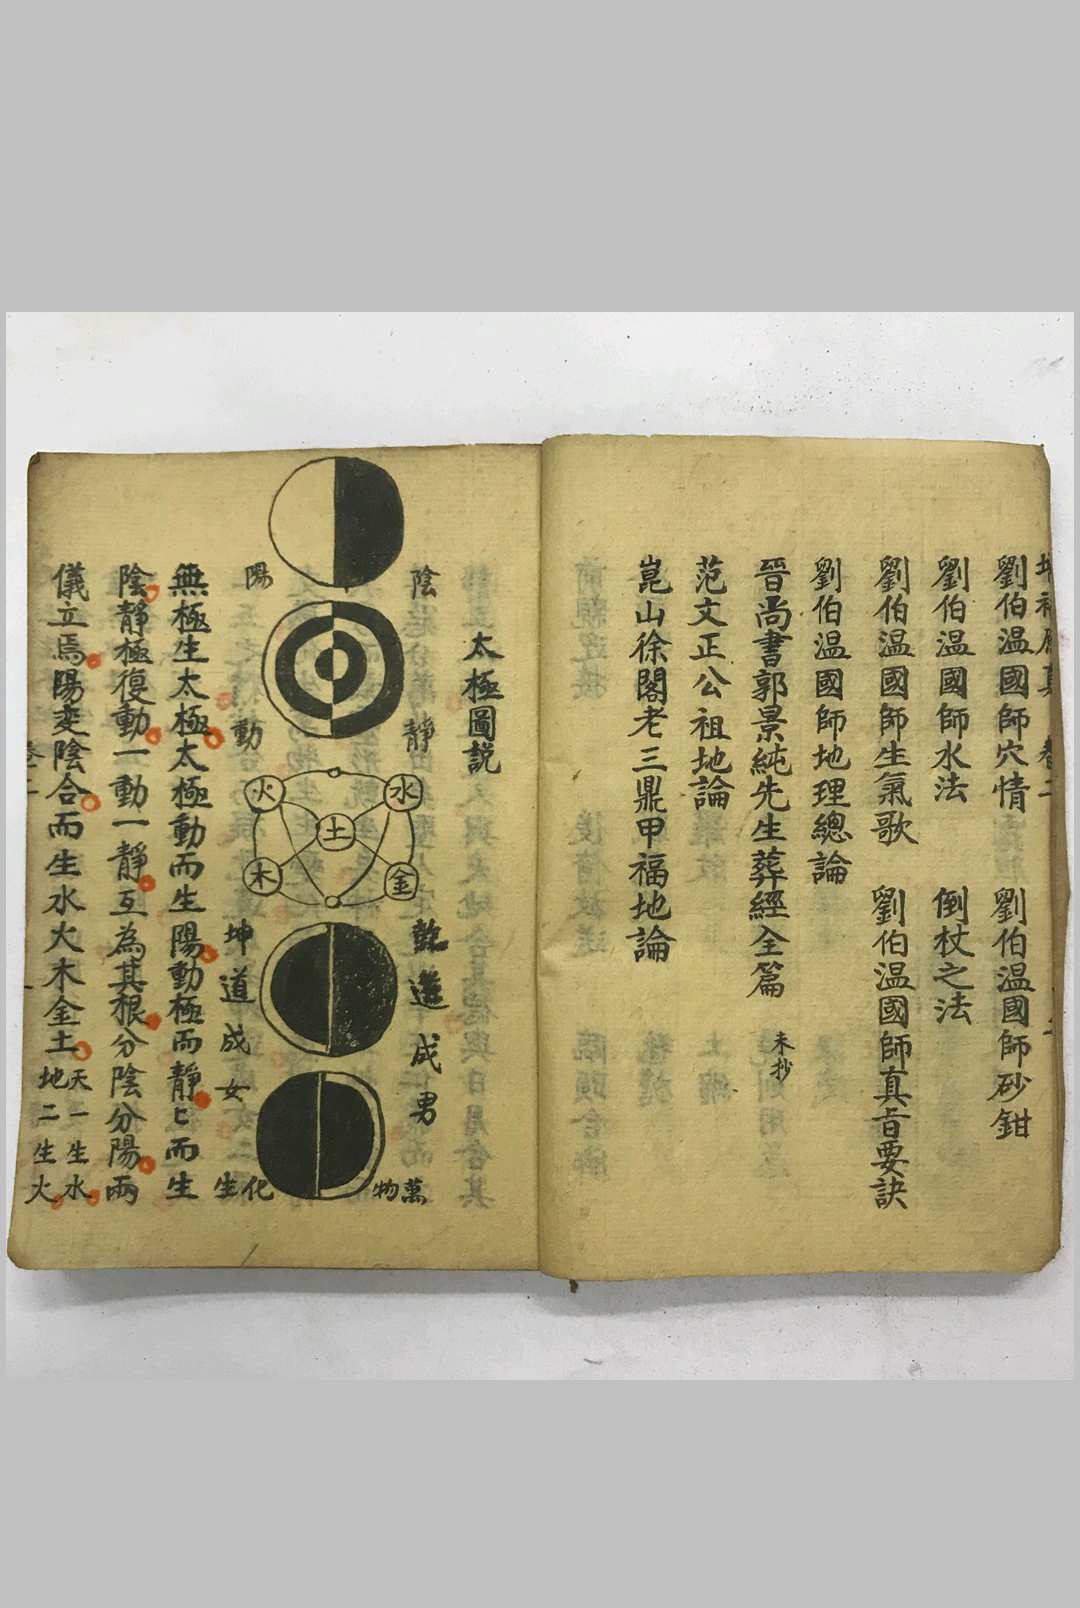 劉伯温國師穴情 劉伯温國師砂鉗
劉伯温國師水法 倒杖之法
劉伯温國師生氣歌 劉伯温國師真旨要訣
劉伯温國師地理總論
晉尚書郭景純先生葬經全篇 未抄
范文正公祖地論
崑山徐閣老三鼎甲福地論
太極圖説
陰 靜
陽 動
水
火
土
金
木
乾道成男
坤道成女
萬物
化生
無極生太極太極動而生陽動極而靜匕而生
陰靜極復動一動一靜互為其根分陰分陽兩
儀立焉陽变陰合而生水火木金土天一生水
地二生火